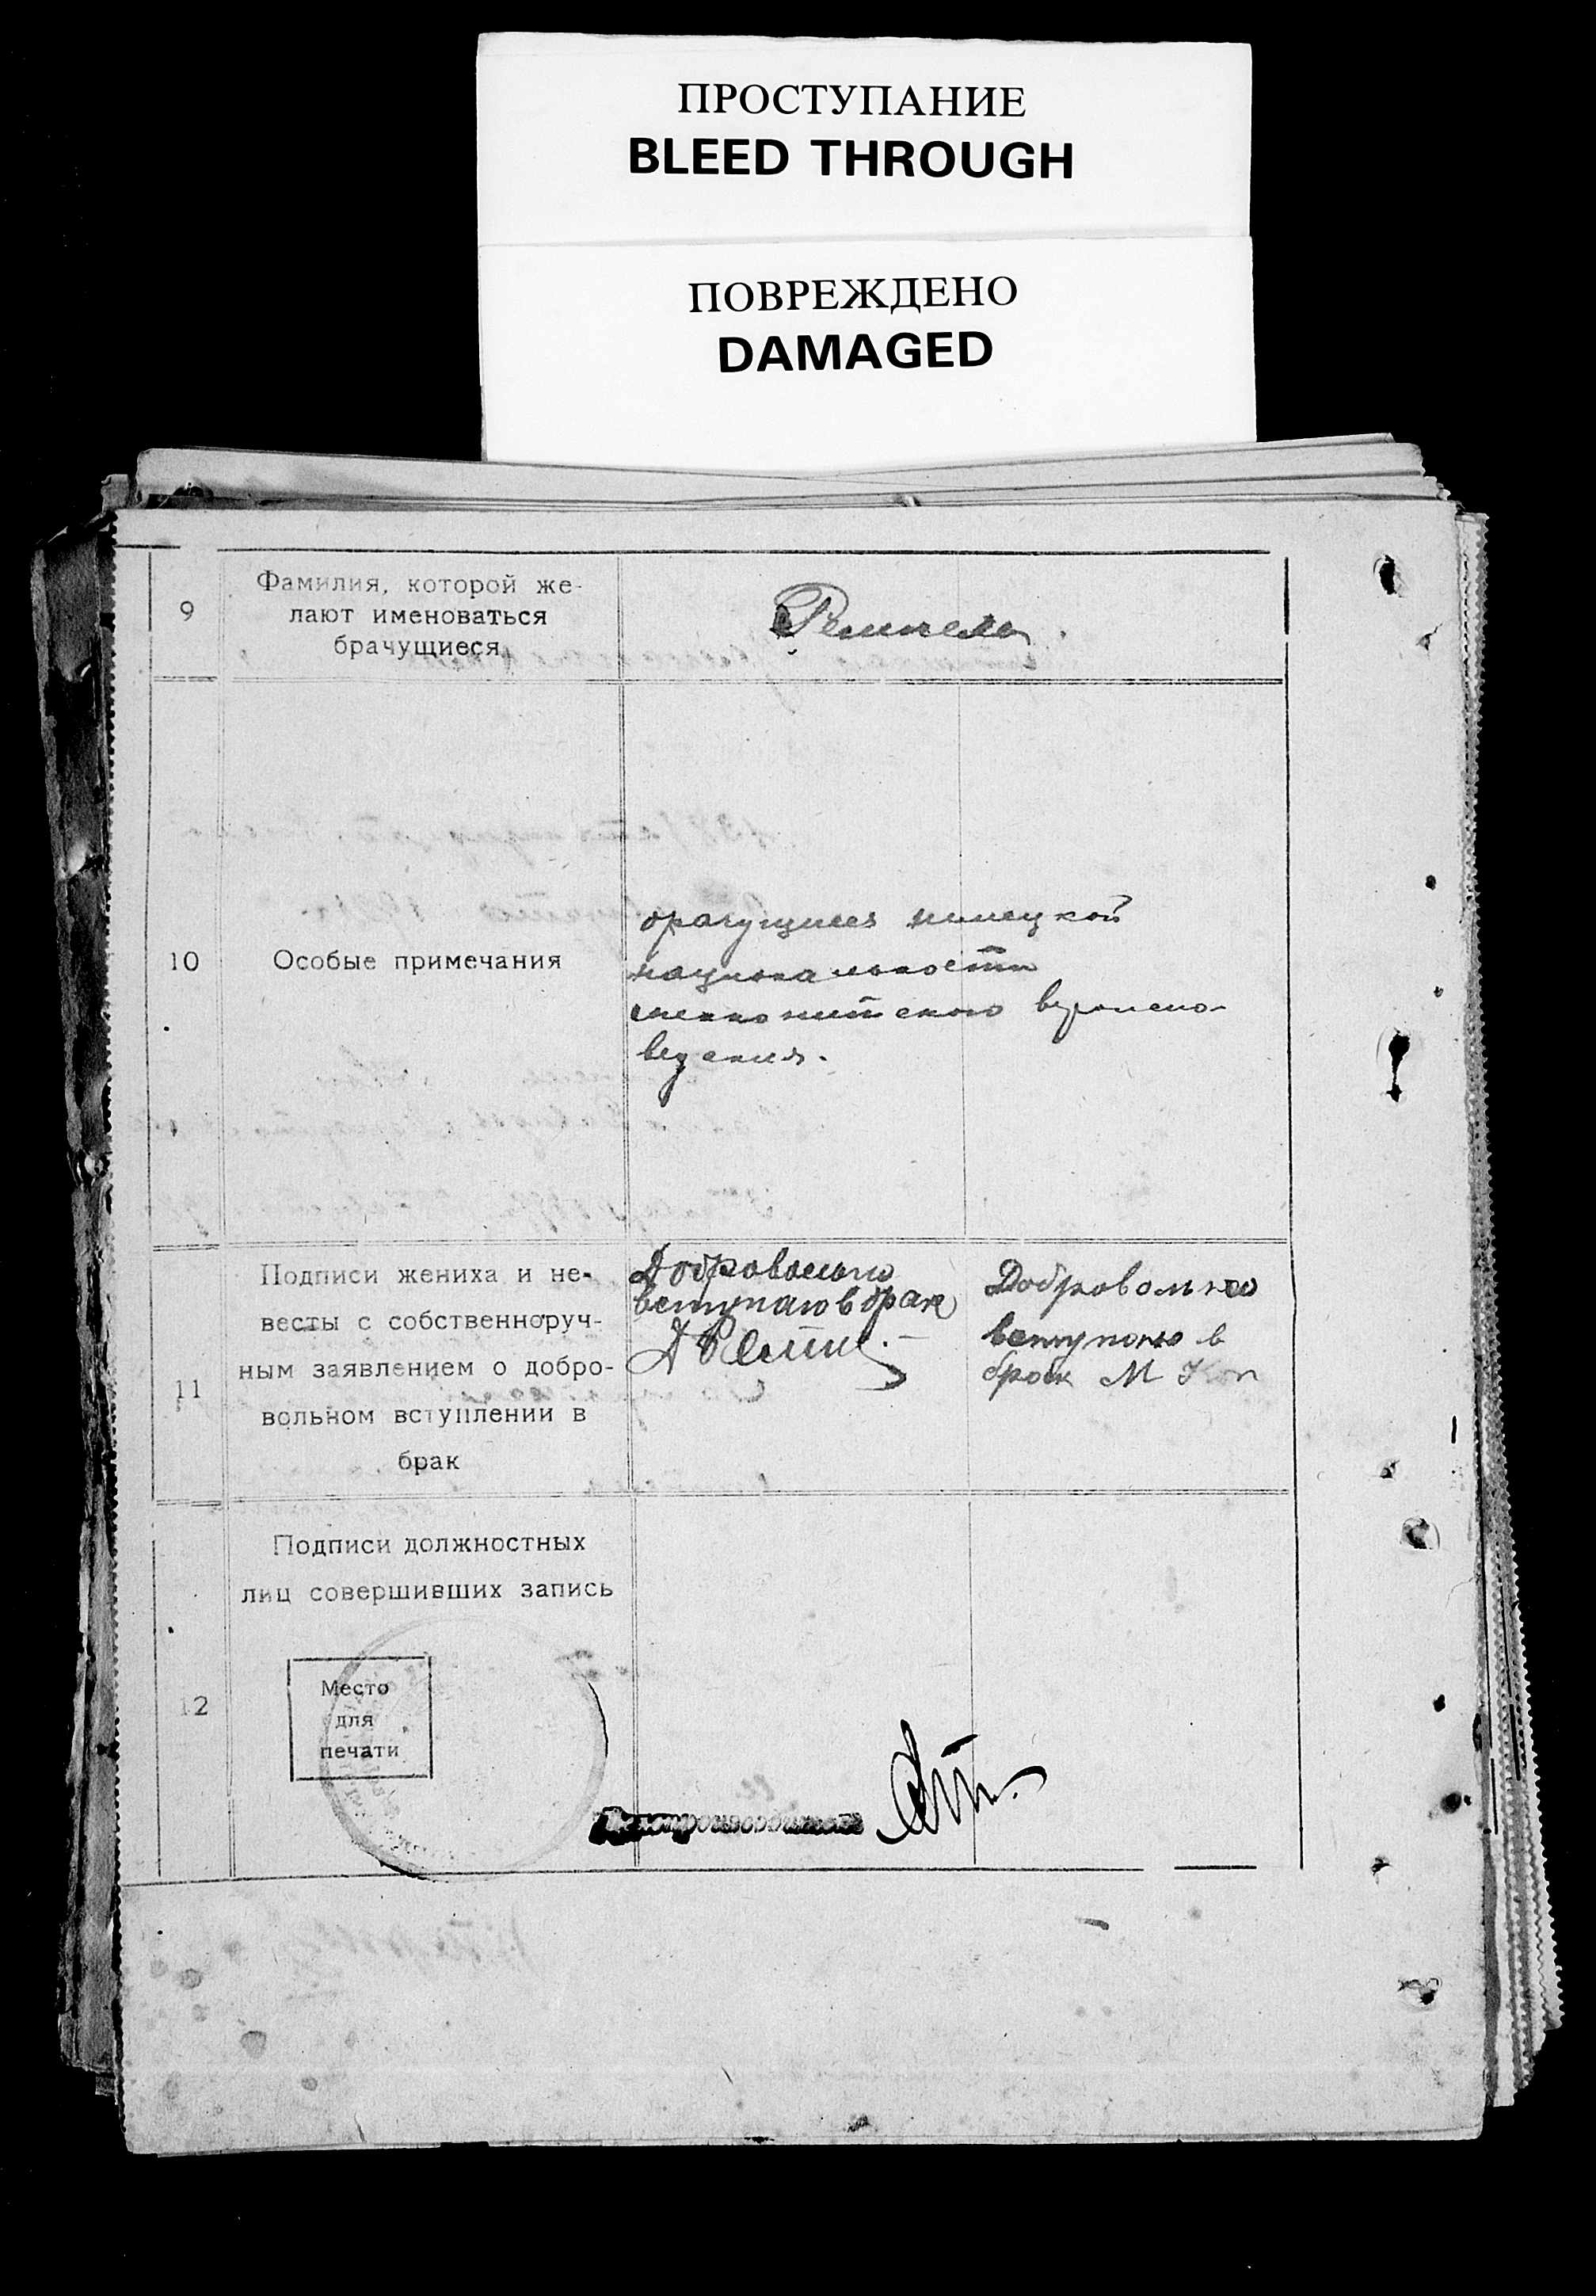 ПРОСТУПАНИЕ
BLEED THROUGH
ПОВРЕЖДЕНО
DAMAGED
9
Фамилия, которой же-
лают именоваться
брачущиеся
10
Особые примечания
брачущиеся немецкой
национальности
меннонитского вероиспо-
ведения.
11
Подписи жениха и не-
весты с собственноруч-
ным заявлением о добро-
вольном вступлении в
брак
Добровольно
вступаю в брак
Добровольно
вступаю в
брак М
12
Подписи должностных
лиц совершивших запись
Место
для
печати